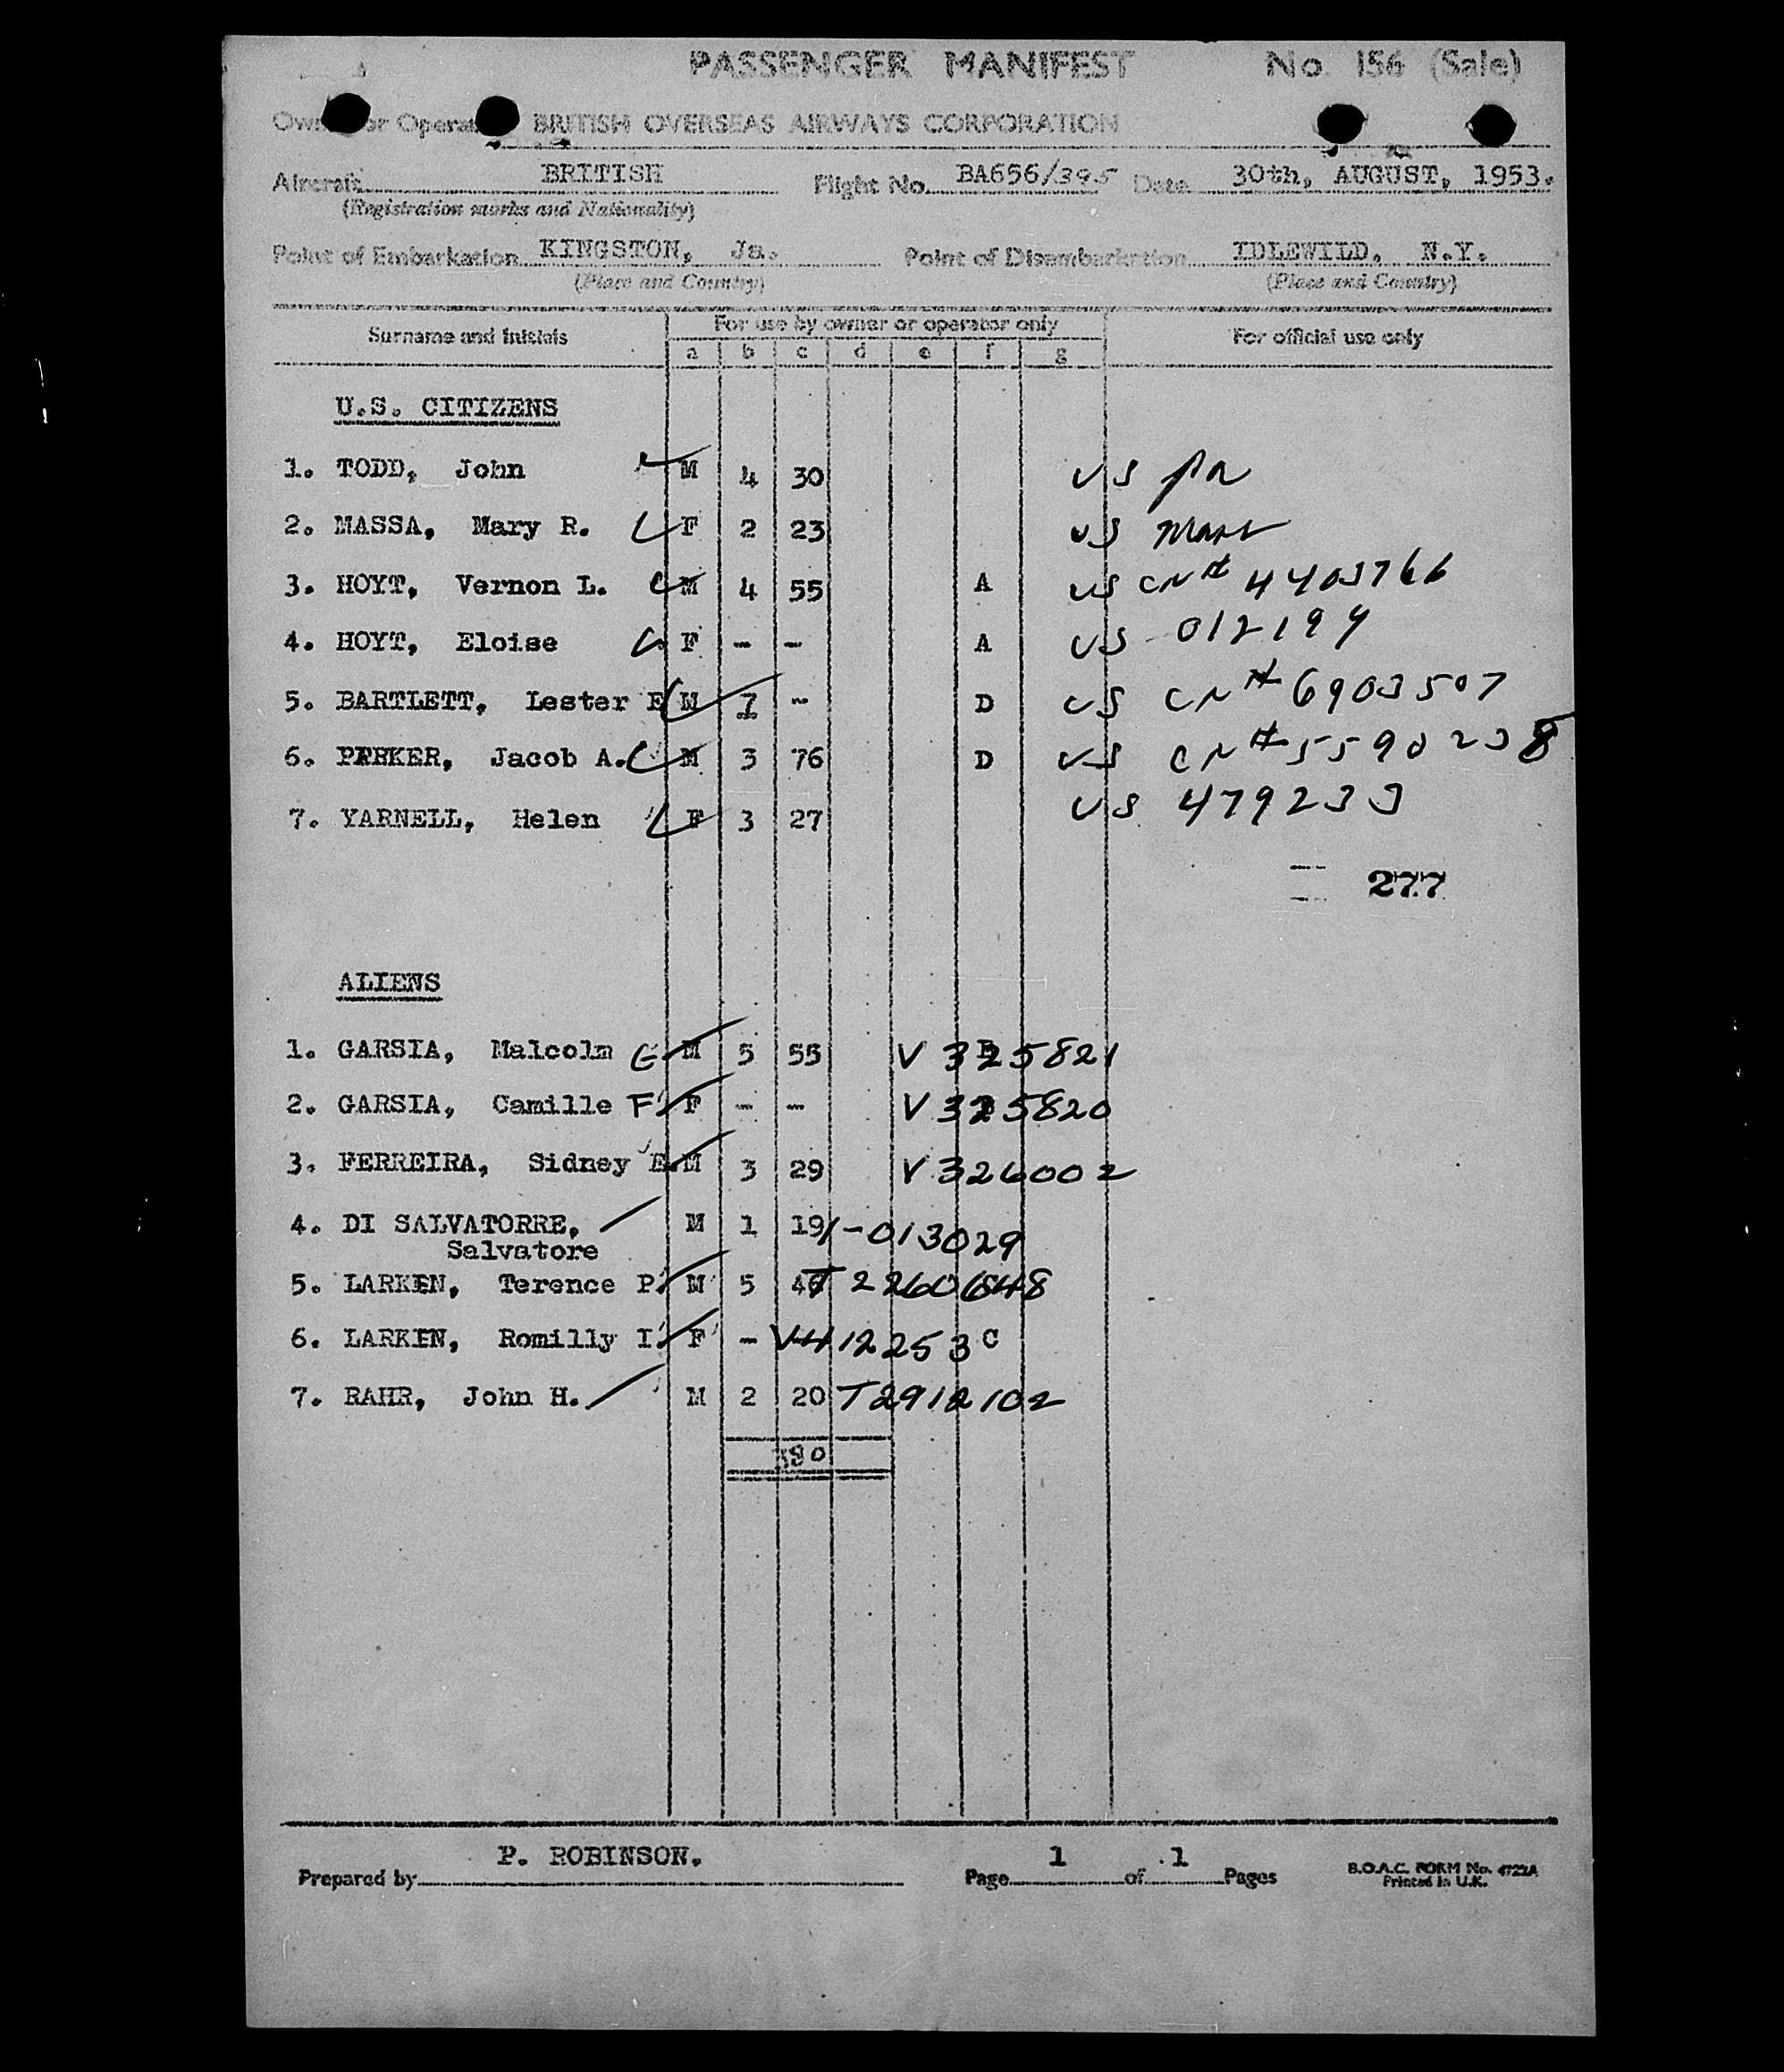 PASSENGER MANIFEST No. 156 (Sale)
Owner or Operator BRITISH OVERSEAS AIRWAYS CORPORATION
Aircraft BRITISH Flight No. BA656/395 Date 30th, AUGUST, 1953.
(Registration marks and Nationality)
Point of Embarkation KINGSTON, Ja. Point of Disembarkation IDLEWILD, N.Y.
(Place and Country) (Place and Country)
Surname and Initials For use by owner or operator only For official use only
a b c d e f g
U.S. CITIZENS
1. TODD, John M 4 30 US
2. MASSA, Mary R. F 2 23 US
3. HOYT, Vernon L. M 4 55 A US CN# 4403766
4. HOYT, Eloise F - - A US 012194
5. BARTLETT, Lester E M 7 - D US CN# 6903507
6. PARKER, Jacob A. M 3 76 D US CN# 5590238
7. YARNELL, Helen F 3 27 US 479233
277
ALIENS
1. GARSIA, Malcolm G. M 5 55 V 325821
2. GARSIA, Camille F. F - - V 325820
3. FERREIRA, Sidney E. M 3 29 V 326002
4. DI SALVATORRE, M 1 19 1-013029
Salvatore
5. LARKEN, Terence P. M 5 46 T 2260648
6. LARKEN, Romilly I. F - V412253 C
7. RAHR, John H. M 2 20 T2912102
380
P. ROBINSON.
Prepared by Page 1 of 1 Pages
B.O.A.C. FORM No. 4722A
Printed in U.K.